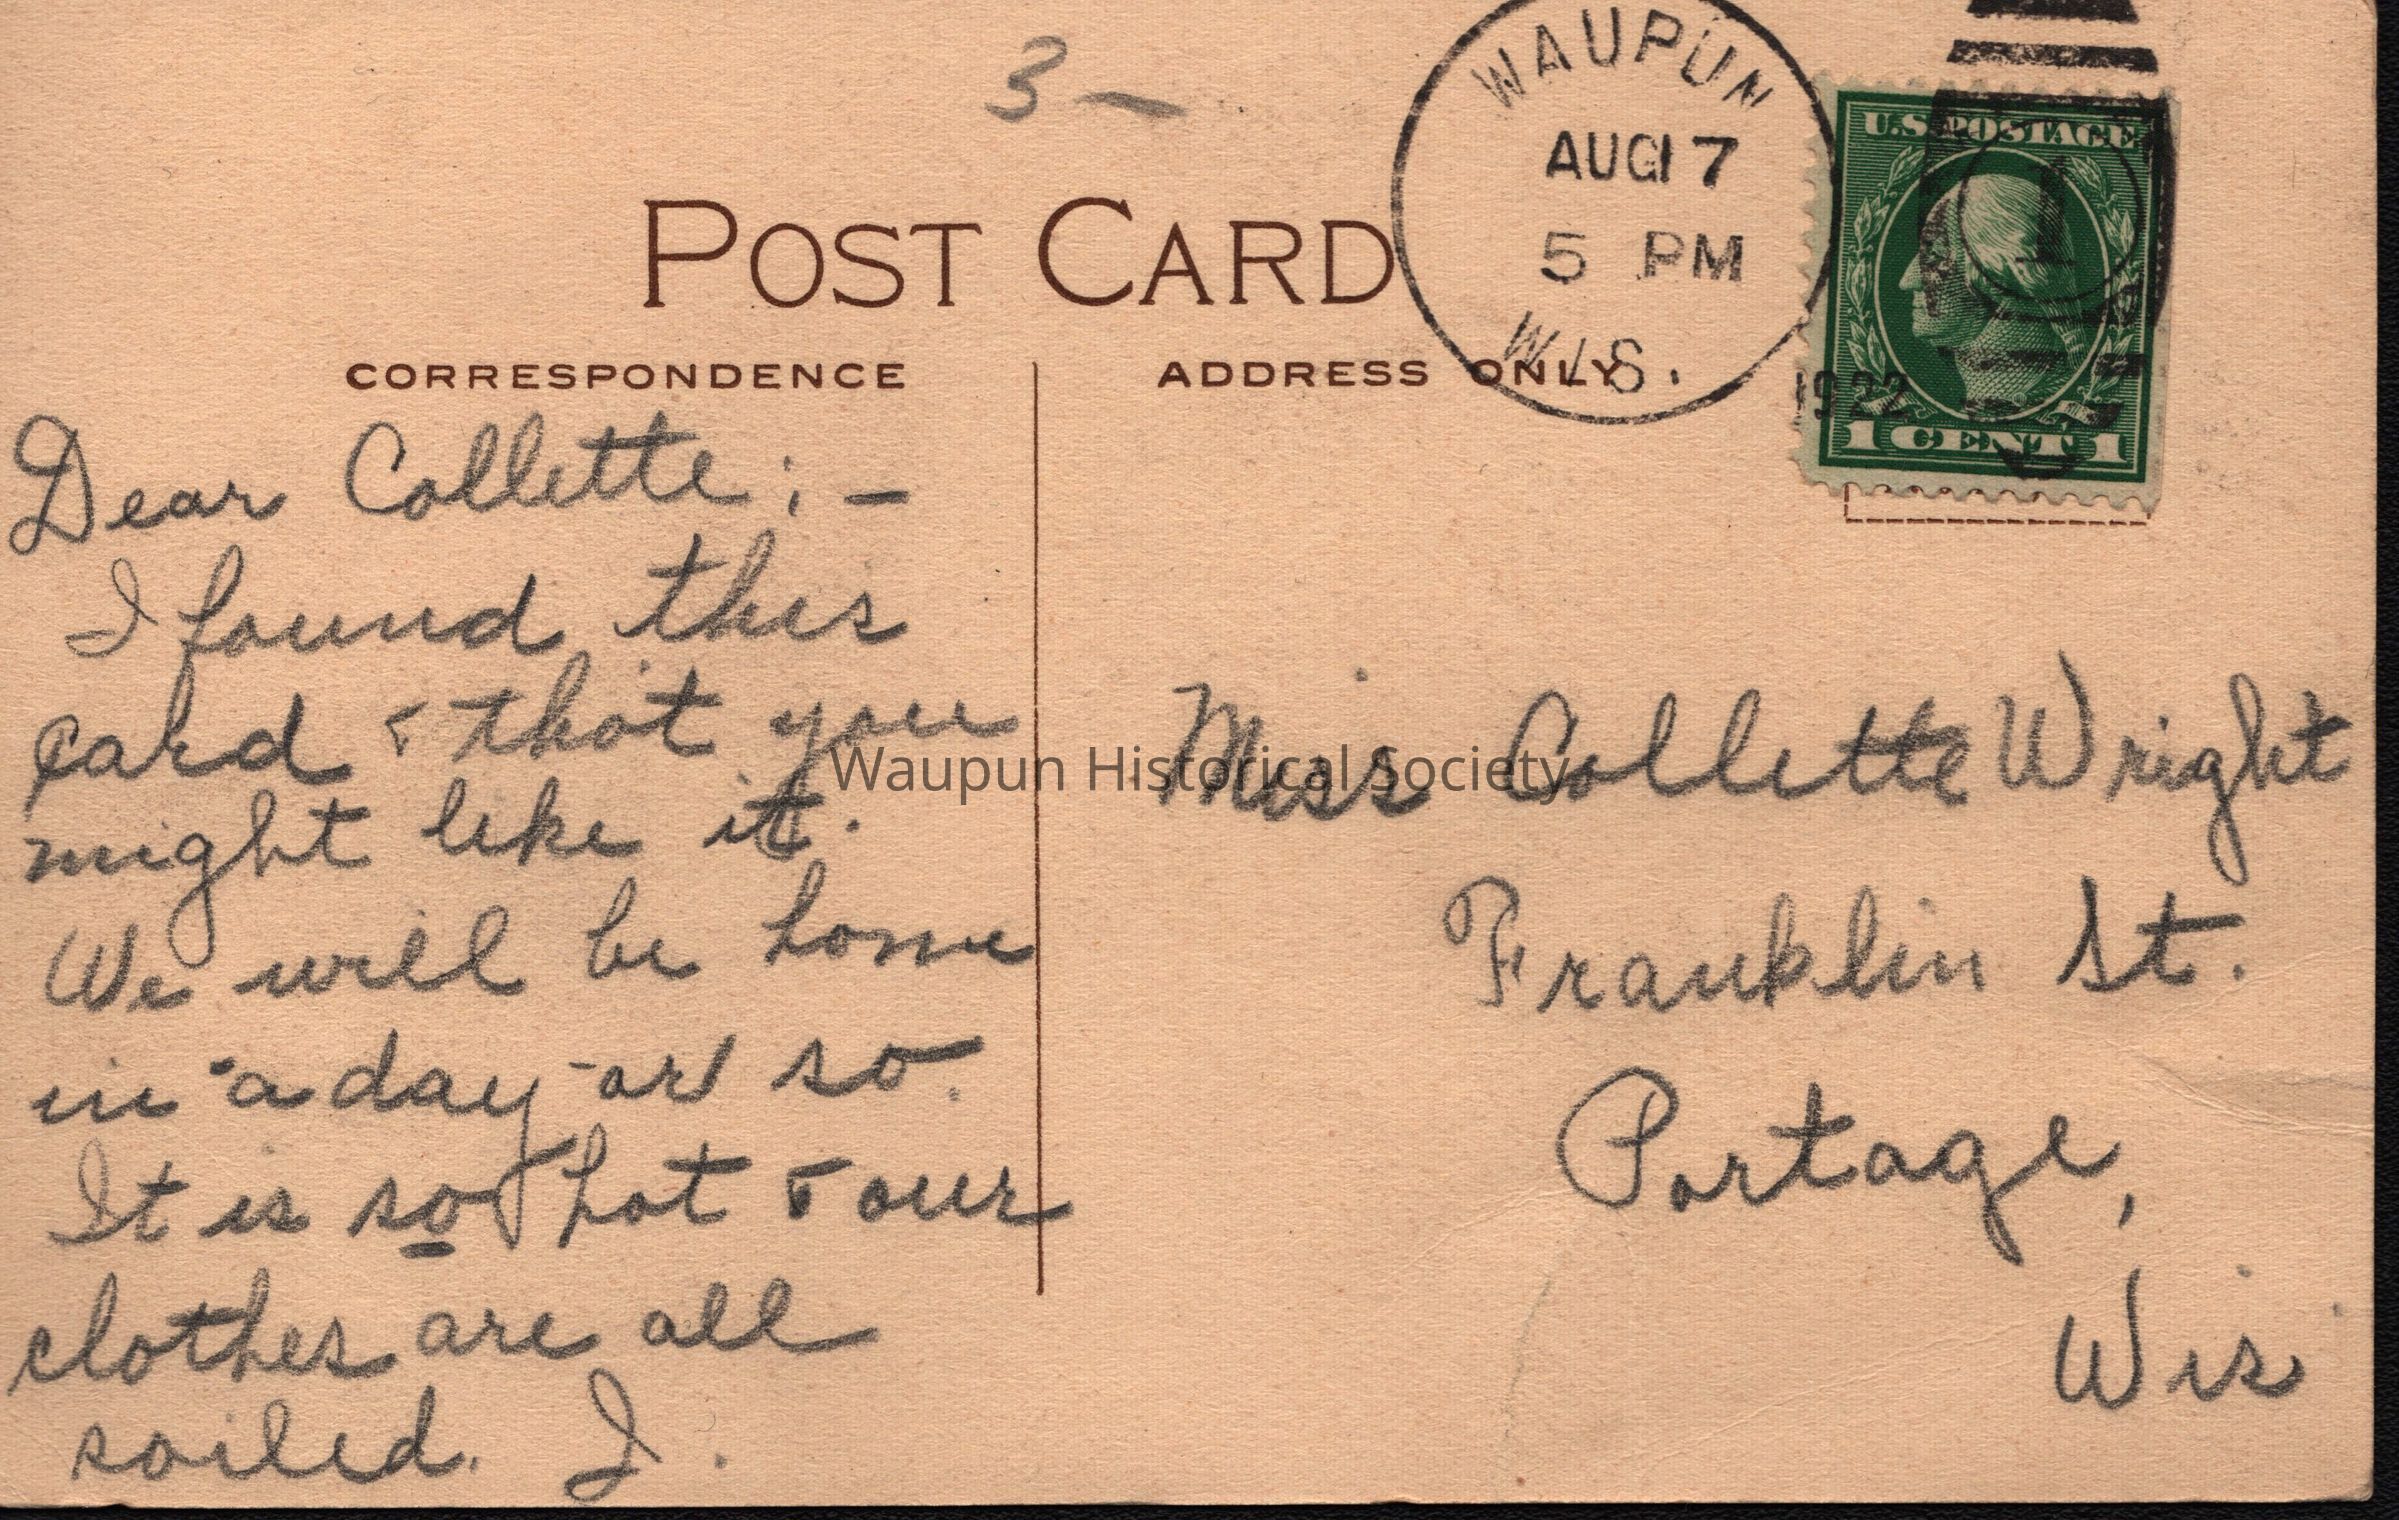 3 —
WAUPUN
AUG 17
5 PM
WIS.
1922
U.S. POSTAGE
1
1 CENT 1
POST CARD
CORRESPONDENCE
ADDRESS ONLY
Dear Collette ; —
I found this
card & thot you
might like it.
We will be home
in a day or so.
It is so hot & our
clothes are all
soiled. I.
Miss Collette Wright
Franklin St.
Portage,
Wis
Waupun Historical Society